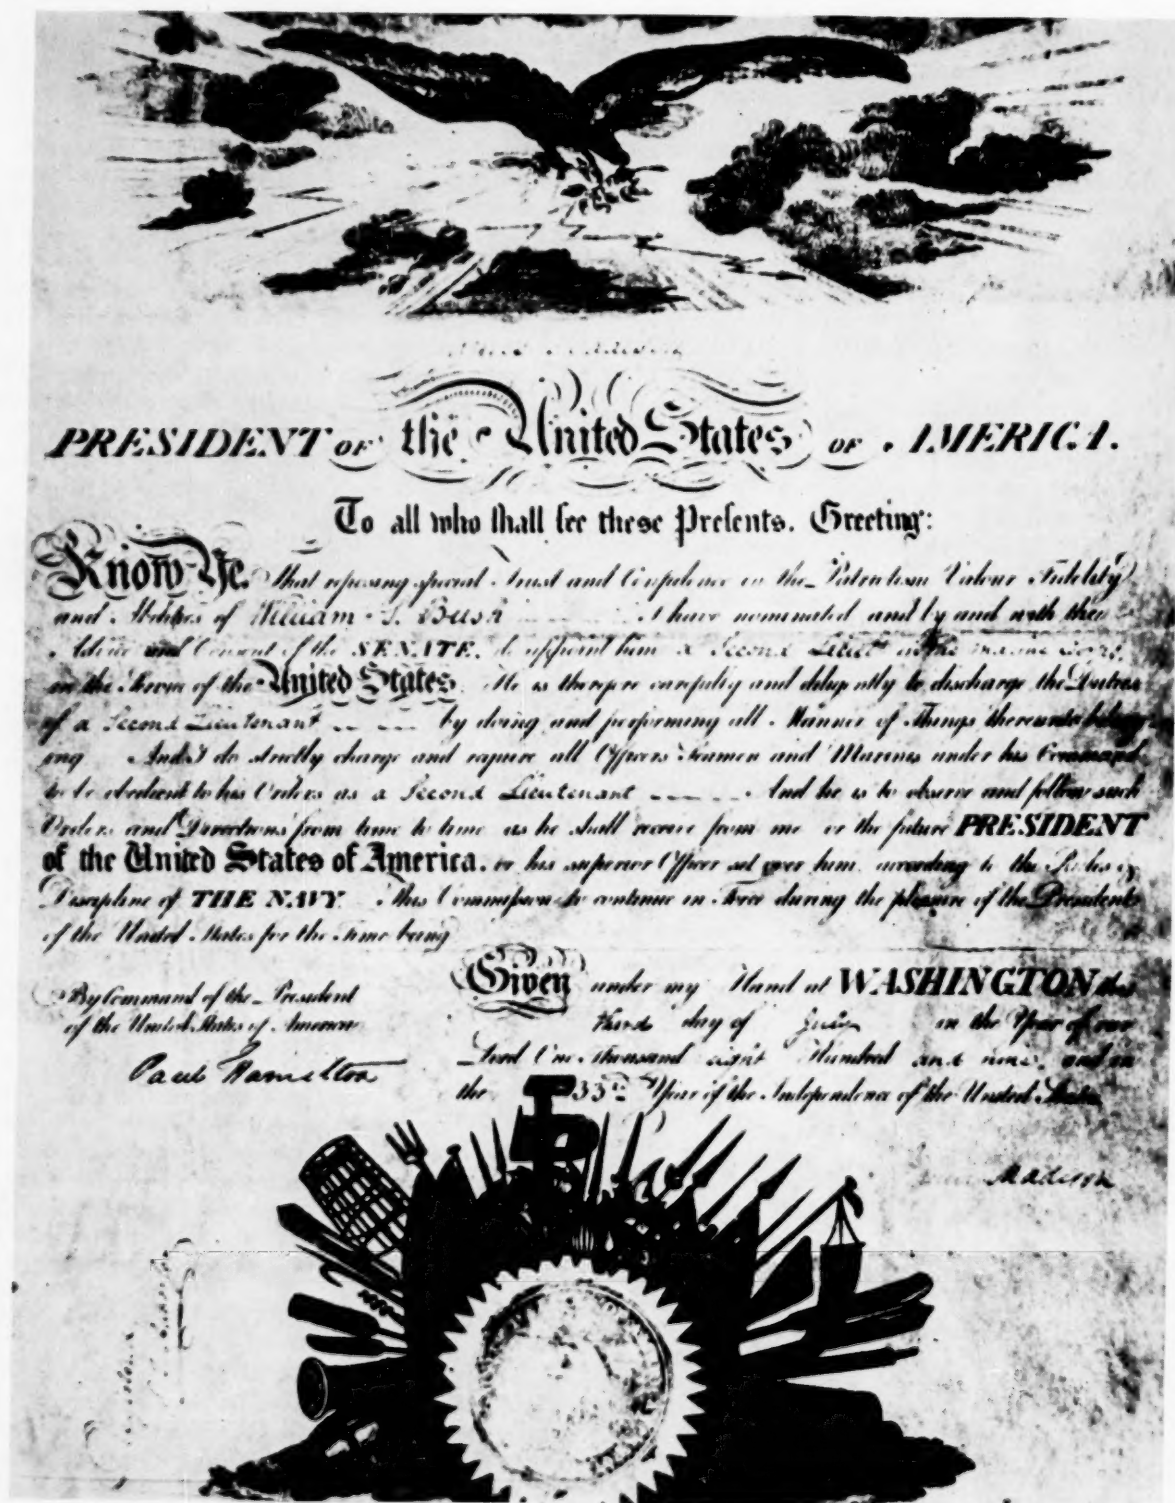 PRESIDENT OF the United States OF AMERICA.
To all who shall see these Presents, Greeting:
Know Ye, that reposing special Trust and Confidence in the Patriotism Valour Fidelity
and Abilities of William S. Bush I have nominated and by and with the
Advice and Consent of the SENATE, do appoint him a Second Lieutt in the Marine Corps,
in the Service of the United States. He is therefore carefully and diligently to discharge the Duties
of a Second Lieutenant by doing and performing all Manner of Things thereunto belong
ing And I do strictly charge and require all Officers Seamen and Marines under his Command
to be obedient to his Orders as a Second Lieutenant And he is to observe and follow such
Orders and Directions from time to time as he shall receive from me or the future PRESIDENT
of the United States of America, or his superior Officer set over him, according to the Rules &
Discipline of THE NAVY This Commission to continue in Force during the pleasure of the President
of the United States for the time being
Given under my Hand at WASHINGTON this
third day of July in the Year of our
Lord One Thousand eight Hundred and nine, and in
the 33rd Year of the Independence of the United States
By Command of the President
of the United States of America
Paul Hamilton
Madison